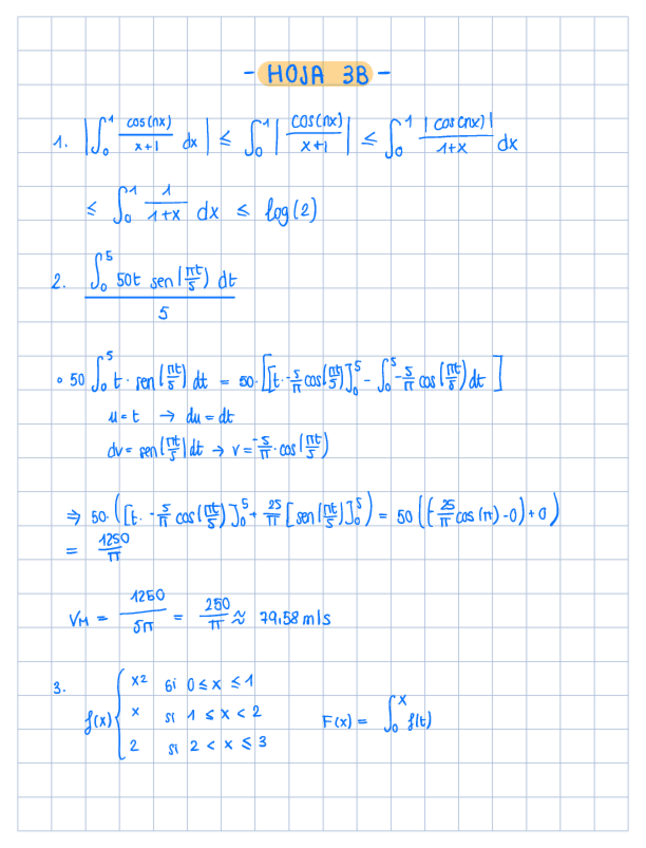 - HOJA 3B -
1. |∫₀¹ cos(nx)/(x+1) dx| ≤ ∫₀¹ |cos(nx)/(x+1)| ≤ ∫₀¹ |cos(nx)|/(1+x) dx
≤ ∫₀¹ 1/(1+x) dx ≤ log(2)
2. (∫₀⁵ 50t sen(πt/5) dt)/5
∘ 50 ∫₀⁵ t · sen(πt/5) dt = 50·[[t·-5/π cos(πt/5)]₀⁵ - ∫₀⁵ -5/π cos(πt/5) dt]
u=t → du=dt
dv= sen(πt/5) dt → v= -5/π · cos(πt/5)
⇒ 50·([t· -5/π cos(πt/5)]₀⁵ + 25/π [sen(πt/5)]₀⁵) = 50((-25/π cos(π)-0)+0)
= 1250/π
VM = 1250/5π = 250/π ≈ 79,58 m/s
3. f(x) { x2 si 0 ≤ x ≤ 1
x si 1 ≤ x < 2
2 si 2 < x ≤ 3
F(x) = ∫₀ˣ f(t)